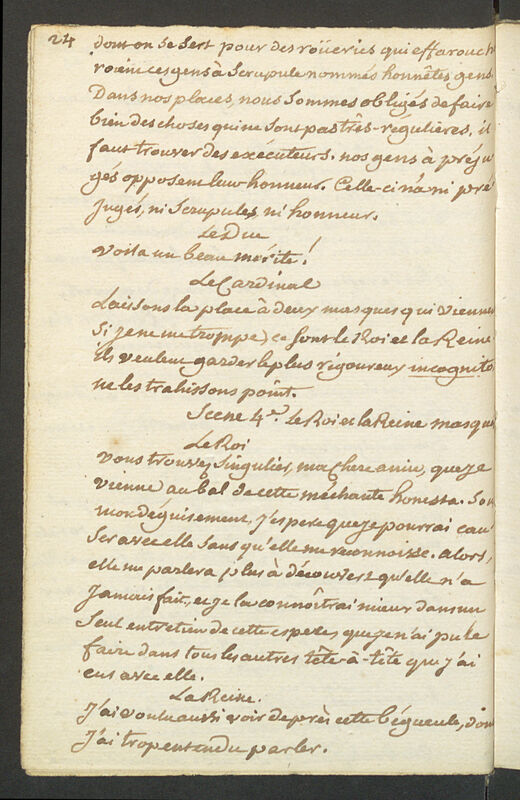 24
dont on se sert pour des roüeries qui effarouch
roient ces gens à scrupule nommés honnêtes gens.
Dans nos places, nous sommes obligés de faire
bien des choses qui ne sont pas très-régulières. il
faut trouver des exécuteurs. nos gens à préju
gés opposent leur honneur. Celle-ci n'a ni pré
jugés, ni scrupules, ni honneur.
Le Duc
voila un beau mérite!
Le Cardinal
Laissons la place à deux masques qui viennen
si je ne me trompe) ce sont le Roi et la Reine
ils veulent garder le plus rigoureux incognito
ne les trahissons point.
Scene 4e. Le Roi et la Reine masqué
Le Roi
vous trouvez singulier, ma chere amie, que je
vienne au bal de cette méchante honesta. Sou
mon déguisement, j'espere que je pourrai cau
ser avec elle sans qu'elle me reconnoisse. alors,
elle me parlera plus à découvert qu'elle n'a
Jamais fait, et je la connoîtrai mieux dans un
seul entretien de cette espece que je n'ai pu le
faire dans tous les autres tête-à-tête que j'ai
eus avec elle.
La Reine.
J'ai voulu aussi voir de près cette bégueule, don
J'ai trop entendu parler.